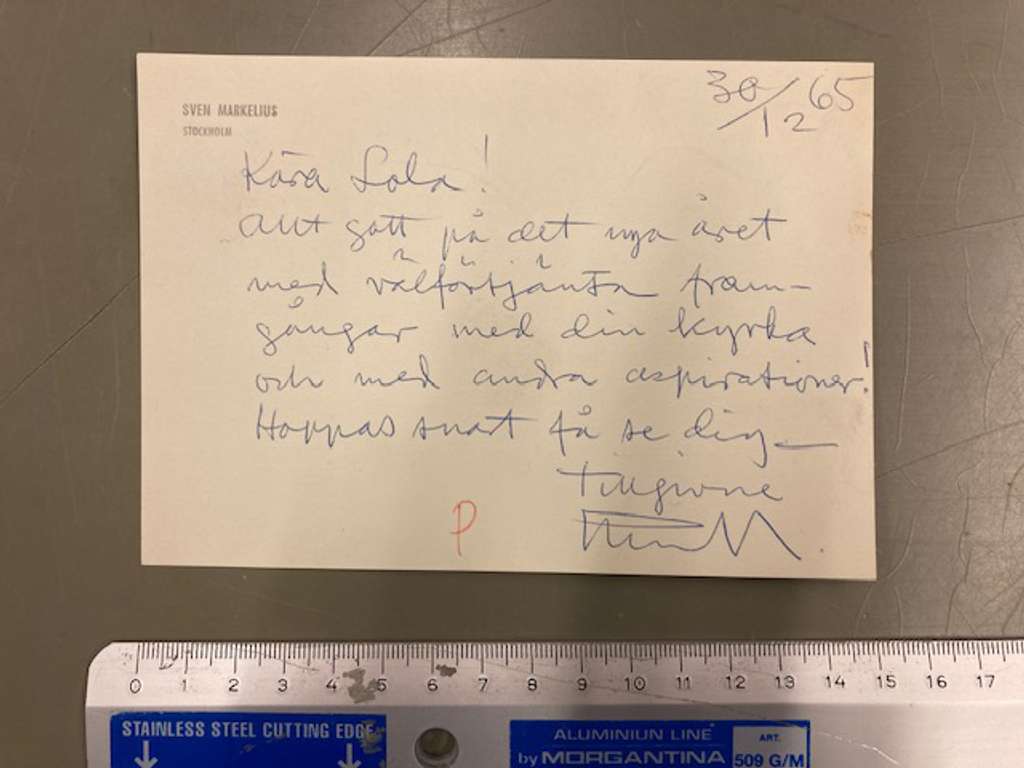 SVEN MARKELIUS
STOCKHOLM
30/12 65
Kära Lola!
Allt gott på det nya året
med välförtjänta fram-
gångar med din kyrka
och med andra aspirationer!
Hoppas snart få se dig—
Tillgivne
P
0 1 2 3 4 5 6 7 8 9 10 11 12 13 14 15 16 17
STAINLESS STEEL CUTTING EDGE
ALUMINIUN LINE
by MORGANTINA
ART.
509 G/M